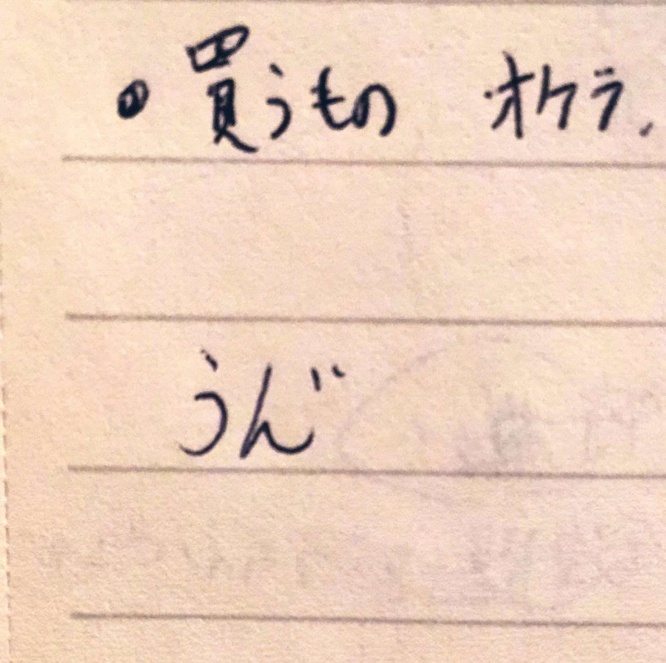 • 買うもの オケラ、
うんど